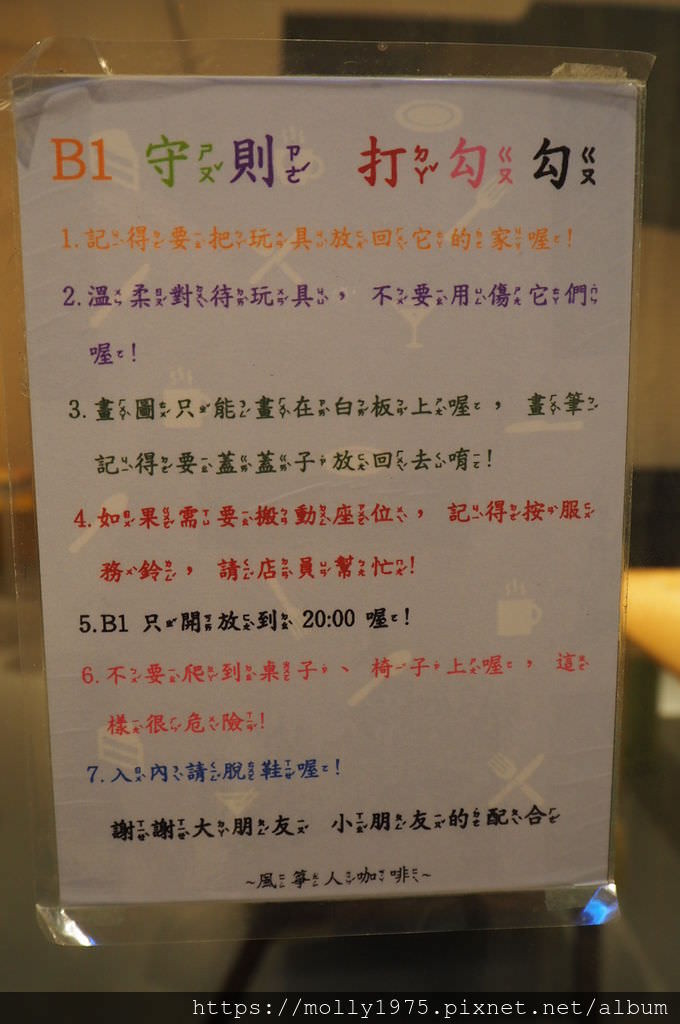 B1 守則 打勾勾
1. 記得要把玩具放回它的家喔!
2. 溫柔對待玩具， 不要用傷它們
喔!
3. 畫圖只能畫在白板上喔， 畫筆
記得要蓋蓋子放回去唷!
4. 如果需要搬動座位， 記得按服
務鈴， 請店員幫忙!
5.B1 只開放到 20:00 喔!
6. 不要爬到桌子、椅子上喔， 這
樣很危險!
7. 入內請脫鞋喔!
謝謝大朋友 小朋友的配合
~風箏人咖啡~
https://molly1975.pixnet.net/album